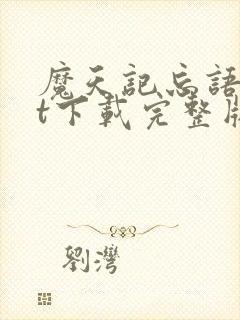 魔天記忘語
t下載完整版
劉灣